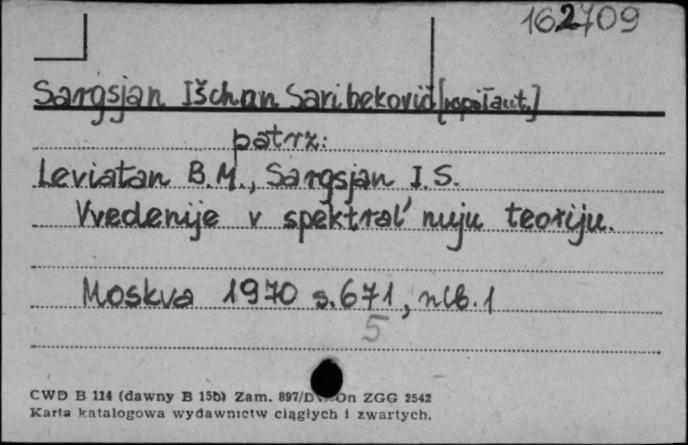 162709
Sargsjan Išchan Saribekovič [współaut.]
patrz:
Leviatan B.M., Sargsjan I.S.
Vvedenije v spektral'nuju teoriju.
Moskva 1970 s. 671, nlb. 1
5
CWD B 114 (dawny B 15b) Zam. 897/D On ZGG 2542
Karta katalogowa wydawnictw ciągłych i zwartych.